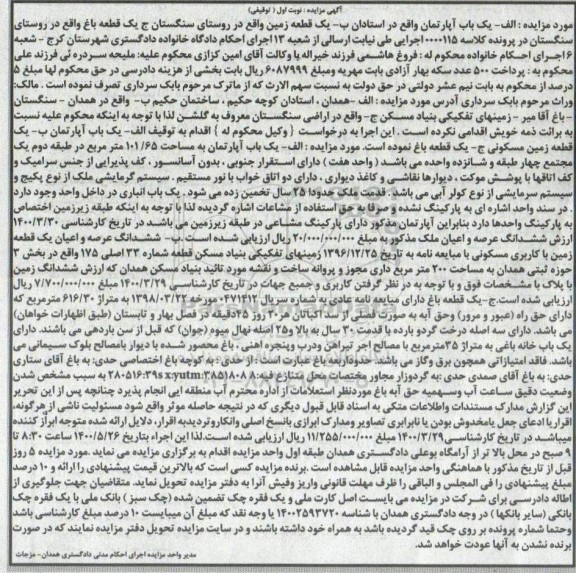 آگهی مزایده : نوبت اول ( توقیفی)
مورد مزایده : الف- یک باب آپارتمان واقع در استادان ب- یک قطعه زمین واقع در روستای سنگستان ج یک قطعه باغ واقع در روستای
سنگستان در پرونده کلاسه ۰۰۰۰۱۱۵ اجرایی طی نیابت ارسالی از شعبه ۱۳ اجرای احکام دادگاه خانواده دادگستری شهرستان کرج - شعبه
۶ اجرای احکام خانواده محکوم له : فروغ هاشمی فرزند خیراله با وکالت آقای امین کزازی محکوم علیه: ملیحه سردره ئی فرزند علی
محکوم به : پرداخت ۵۰۰ عدد سکه بهار آزادی بابت مهریه ومبلغ ۶۰۸۷۹۹۹ ریال بابت بخشی از هزینه دادرسی در حق محکوم لها مبلغ ۵
درصد از محکوم به بابت نیم عشر دولتی در حق دولت به نسبت سهم الارث که از ماترک مرحوم بابک سرداری تصرف نموده است . مالک:
وراث مرحوم بابک سرداری آدرس مورد مزایده : الف -همدان ، استادان کوچه حکیم ، ساختمان حکیم ب- واقع در همدان - سنگستان
- باغ آقا میر - زمینهای تفکیکی بنیاد مسکن ج- واقع در اراضی سنگستان معروف به گلشن لذا با توجه به اینکه محکوم علیه نسبت
به برائت ذمه خویش اقدامی نکرده است . این اجرا به درخواست ( وکیل محکوم له ) اقدام به توقیف الف- یک باب آپارتمان ب- یک
قطعه زمین مسکونی ج- یک قطعه باغ نموده است. مورد مزایده : الف- یک باب آپارتمان به مساحت ۱۰۱/۶۵ متر مربع در طبقه دوم یک
مجتمع چهار طبقه و شانزده واحده می باشد ( واحد هفت ) دارای استقرار جنوبی ، بدون آسانسور ، کف پذیرایی از جنس سرامیک و
کف اتاقها با پوشش موکت ، دیوارها نقاشی و کاغذ دیواری ، دارای دو اتاق خواب با نور مستقیم . سیستم گرمایشی ملک از نوع پکیج و
سیستم سرمایشی از نوع کولر آبی می باشد . قدمت ملک حدودا ۲۵ سال تخمین زده می شود . یک باب انباری در داخل واحد وجود دارد
. در سند واحد اشاره ای به پارکینگ نشده و صرفا به حق استفاده از مشاعات اشاره گردیده لذا با توجه به اینکه طبقه زیرزمین اختصاص
به پارکینگ واحدها دارد بنابراین آپارتمان مذکور دارای پارکینگ مشاعی در طبقه زیرزمین می باشد در تاریخ کارشناسی ۱۴۰۰/۳/۳۰
ارزش ششدانگ عرصه و اعیان ملک مذکور به مبلغ ۲۰/۰۰۰/۰۰۰/۰۰۰ ریال ارزیابی شده است .ب- ششدانگ عرصه و اعیان یک قطعه
زمین با کاربری مسکونی با مبایعه نامه به تاریخ ۱۳۹۶/۱۲/۲۵ زمینهای تفکیکی بنیاد مسکن قطعه شماره ۳۳ اصلی ۱۷۵ واقع در بخش ۳
حوزه ثبتی همدان به مساحت ۲۰۰ متر مربع داری مجوز و پروانه ساخت و نقشه مورد تائید بنیاد مسکن همدان که ارزش ششدانگ زمین
با پلاک با مشخصات فوق و با توجه به در نظر گرفتن کاربری و جمیع جهات در تاریخ کارشناسی ۱۴۰۰/۳/۲۹ مبلغ ۷/۷۰۰/۰۰۰/۰۰۰ ریال
ارزیابی شده است.ج-یک قطعه باغ دارای مبایعه نامه عادی به شماره سریال ۴۷۱۴۱۲ مورخه ۱۳۹۸/۰۳/۲۲ به متراژ ۶۱۶/۳۰ مترمربع که
دارای حق راه (عبور و مرور) وحق آبه به صورت قیلی از سد اکباتان هر ۲۰ روز ۴۵ دقیقه در فصل بهار و تابستان (طبق اظهارات خواهان)
می باشد. دارای سه اصله درخت گردو بارده با قدمت ۳۰ سال به بالا و ۲۵ اصله نهال میوه (جوان) که قبل از سن باردهی می باشند. دارای
یک باب خانه باغی به متراژ ۳۵ مترمربع با مصالح اجر تیرآهن ودرب وپنجره اهنی ، باغ محصور شده با دیوار بامصالح بلوک سیمانی می
باشد. فاقد امتیازاتی همچون برق وگاز می باشد. حدودا ربعه باغ عبارت است: از حدی به کوچه باغ اختصاصی حدی: به باغ آقای ستاری
حدی:، به باغ آقای صمدی حدی:به گردوزار مجاور مختصات محل متنازع فیه: x:yutm:۳۸۵۱۸۰۸ ۸:۲۸۰۵۱۶:۳۹s به سبب مشخص شدن
وضعیت دقیق ساعت آب وسهمیه حق آبه باغ موردنظر استعلامات از اداره محترم آب منطقه ایی انجام پذیرد چنانچه پس از این تحریر
این گزارش مدارک مستندات واطلاعات متکی به اسناد قابل قبول دیگری که در نتیجه حاصله موثر واقع شود مسئولیت ناشی از هرگونه،
اقرار یا ادعای جعل یامخدوش بودن یا نابرابری تصاویر ومدارک ابرازی بانسخ اصلی وانکاروتردیدبه اقرار، دلایل ارائه شده متوجه ابراز کننده
میباشد در تاریخ کارشناسی ۱۴۰۰/۳/۲۹ مبلغ ۱۱/۲۵۵/۰۰۰/۰۰۰ ریال ارزیابی شده است.لذا این اجراء بتاریخ ۱۴۰۰/۵/۲۶ ساعت ۸:۳۰ تا
۹ صبح در محل بالا تر از آرامگاه بوعلی دادگستری همدان طبقه اول واحد مزایده اقدام به برگزاری مزایده می نماید .مورد مزایده ۵ روز
قبل از تاریخ مذکور با هماهنگی واحد مزایده قابل مشاهده است .برنده مزایده کسی است که بالاترین قیمت پیشنهادی را ارائه و ۱۰ درصد
مبلغ پیشنهادی را فی المجلس و الباقی را ظرف مهلت قانونی واریز وفیش آنرا به دفتر مزایده تحویل نماید. متقاضیان جهت جلوگیری از
اطاله دادرسی برای شرکت در مزایده می بایست اصل کارت ملی و یک فقره چک تضمین شده (چک سبز ) بانک ملی با یک فقره چک
بانکی (سایر بانکها ) در وجه دادگستری همدان با شناسه ۱۴۰۰۲۵۹۳۷۲۰ یا وجه نقد که مبلغ آن میبایست ۱۰ درصد مبلغ کارشناسی باشد
وحتما شماره پرونده بر روی چک قید گردیده باشد به همراه خود داشته باشند و در سایت مزایده تحویل دفتر مزایده نمایند که در صورت
برنده نشدن به آنها عودت خواهد شد.
مدیر واحد مزایده اجرای احکام مدنی دادگستری همدان- مزجات